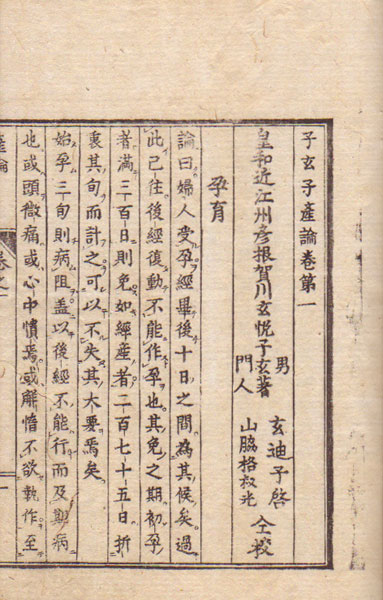 子玄子產論卷第一
皇和近江州彥根賀川玄悅子玄著
男 玄迪子啓
門人 山脇格叔光 仝校
孕育
論曰婦人受孕經畢後十日之間為其候矣過
此已往後經復動不能作孕也其免之期初孕
者滿三百日則免如經產者二百七十五日折
裏其旬而計之可以不失其大要焉矣
始孕三旬則病阻盖以後經不能行而及期病
也或頭微痛或心中憒焉或懈惰不欲執作至
產論
卷之一